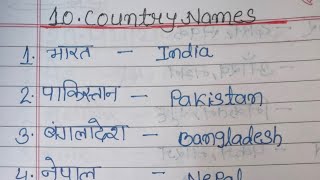 10. Country Names
1. भारत - India
2. पाकिस्तान - Pakistan
3. बंगलादेश - Bangladesh
4. नेपाल - Nepal